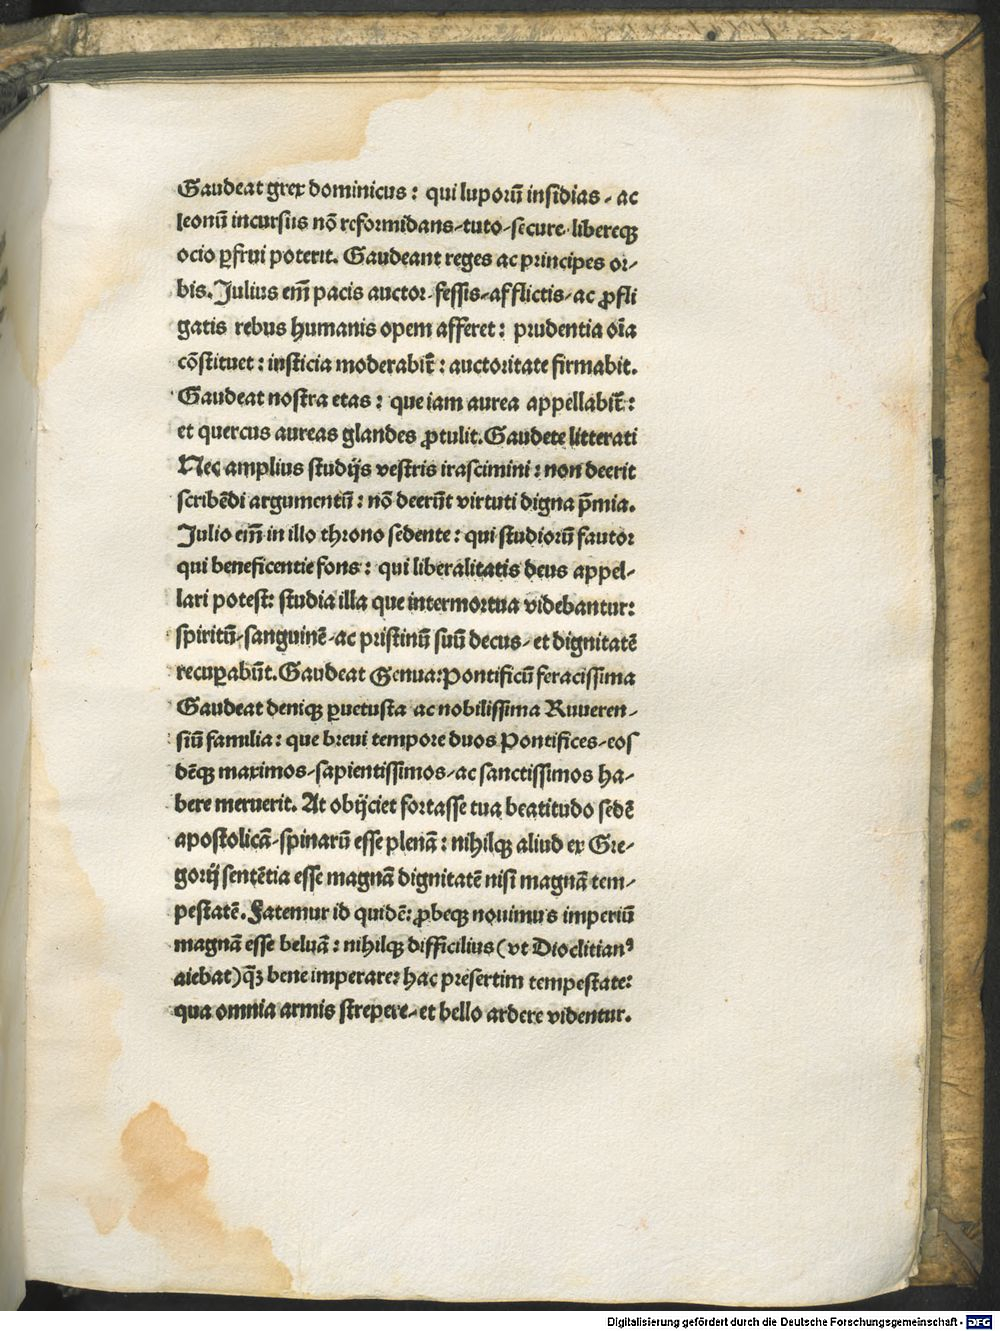 Gaudeat grex dominicus: qui luporũ insidias ⸗ ac
leonũ incursus nõ reformidans⸗tuto⸗secure⸗libereqꝫ
ocio ꝑfrui poterit. Gaudeant reges ac principes or⸗
bis. Julius em̃ pacis auctor⸗fessis⸗afflictis⸗ac ꝓfli
gatis rebus humanis opem afferet: prudentia oĩa
cõstituet: insticia moderabit̃: auctoritate firmabit.
Gaudeat nostra etas: que iam aurea appellabit̃:
et quercus aureas glandes ꝓtulit. Gaudete litterati
Nec amplius studijs vestris irascimini: non deerit
scribẽdi argumentũ: nõ deerũt virtuti digna p̃mia.
Julio em̃ in illo throno sedente: qui studiorũ fautor
qui beneficentie fons: qui liberalitatis deus appel⸗
lari potest: studia illa que intermortua videbantur:
spiritũ⸗sanguinẽ⸗ac pristinũ suũ decus⸗et dignitatẽ
recuꝑabũt. Gaudeat Genua: Pontificũ feracissima
Gaudeat deniqꝫ ꝑuetusta ac nobilissima Ruueren⸗
siũ familia: que breui tempore duos Pontifices⸗eos
dẽqꝫ maximos⸗sapientissimos⸗ac sanctissimos ha⸗
bere meruerit. At obijciet fortasse tua beatitudo sedẽ
apostolicã⸗spinarũ esse plenã: nihilqꝫ aliud ex Gre⸗
gorij sentẽtia esse magnã dignitatẽ nisi magnã tem⸗
pestatẽ. Fatemur id quidẽ: ꝓbeqꝫ nouimus imperiũ
magnã esse beluã: nihilqꝫ difficilius (vt Dioclitianꝰ
aiebat) q̃ꝫ bene imperare: hac presertim tempestate:
qua omnia armis strepere⸗et bello ardere videntur.
Digitalisierung gefördert durch die Deutsche Forschungsgemeinschaft - DFG